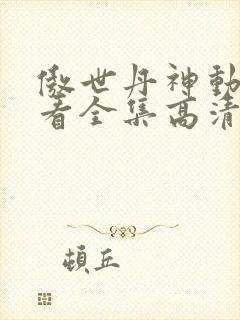 傲世丹神動
看全集高清
頓丘